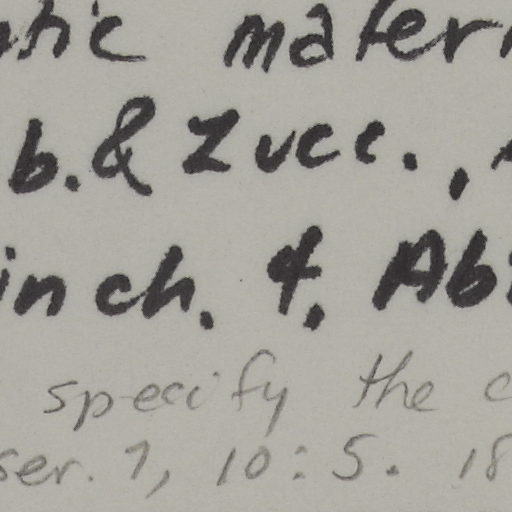 tic mater
b. & Zucc.,
inch. 4. Ab
specify the c
ser. 7, 10:5. 18